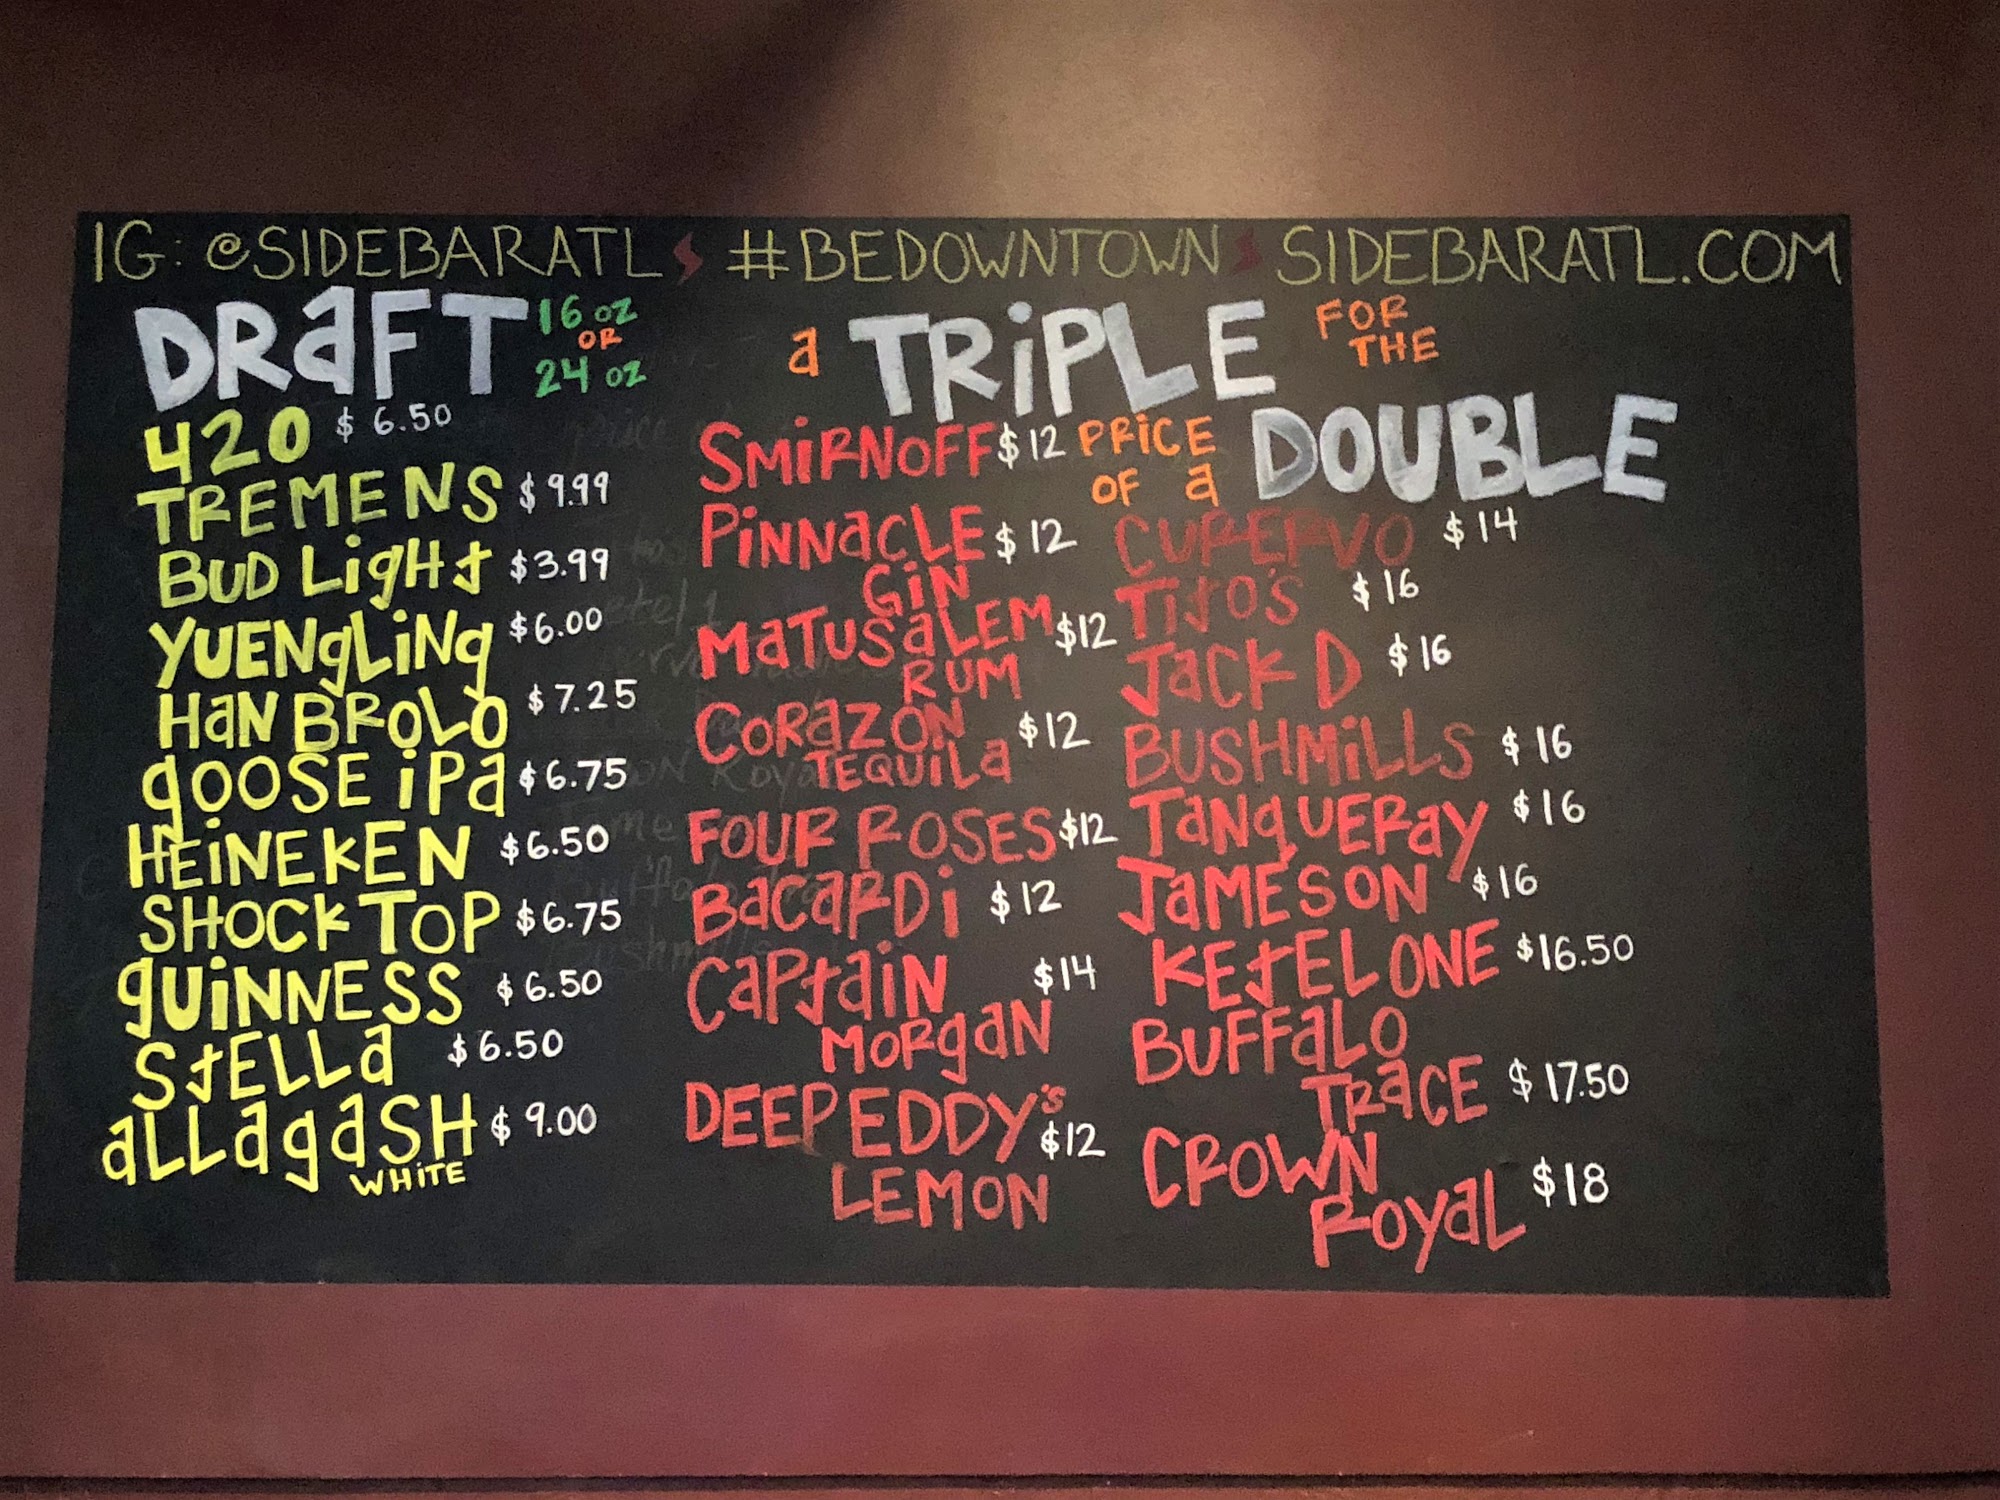 IG: @SIDEBARATL #BEDOWNTOWN SIDEBARATL.COM
DRaFT 16 oz OR 24 oz
420 $ 6.50
TREMENS $ 9.99
BUD LigHt $3.99
YUENgLiNg $6.00
HaN BROLO $ 7.25
gOOSE iPa $ 6.75
HEiNEKEN $6.50
SHOCK TOP $6.75
gUiNNESS $ 6.50
StELLa $ 6.50
aLLagaSH $ 9.00
WHiTE
a TRiPLE FOR THE
PRiCE OF a DOUBLE
SMiRNOFF $12
PiNNaCLE $ 12
GiN
MaTUSaLEM $12
RUM
CORaZON $12
TEQUiLa
FOUR ROSES $12
BaCaRDi $12
CaPtaiN $14
MORgaN
DEEP EDDY's $12
LEMON
CUPERVO $ 14
TitO'S $ 16
JaCK D $ 16
BUSHMiLLS $ 16
TaNqUERay $16
JaMESON $16
KEtEL ONE $16.50
BUFFaLO
TRaCE $ 17.50
CROWN
ROyaL $18